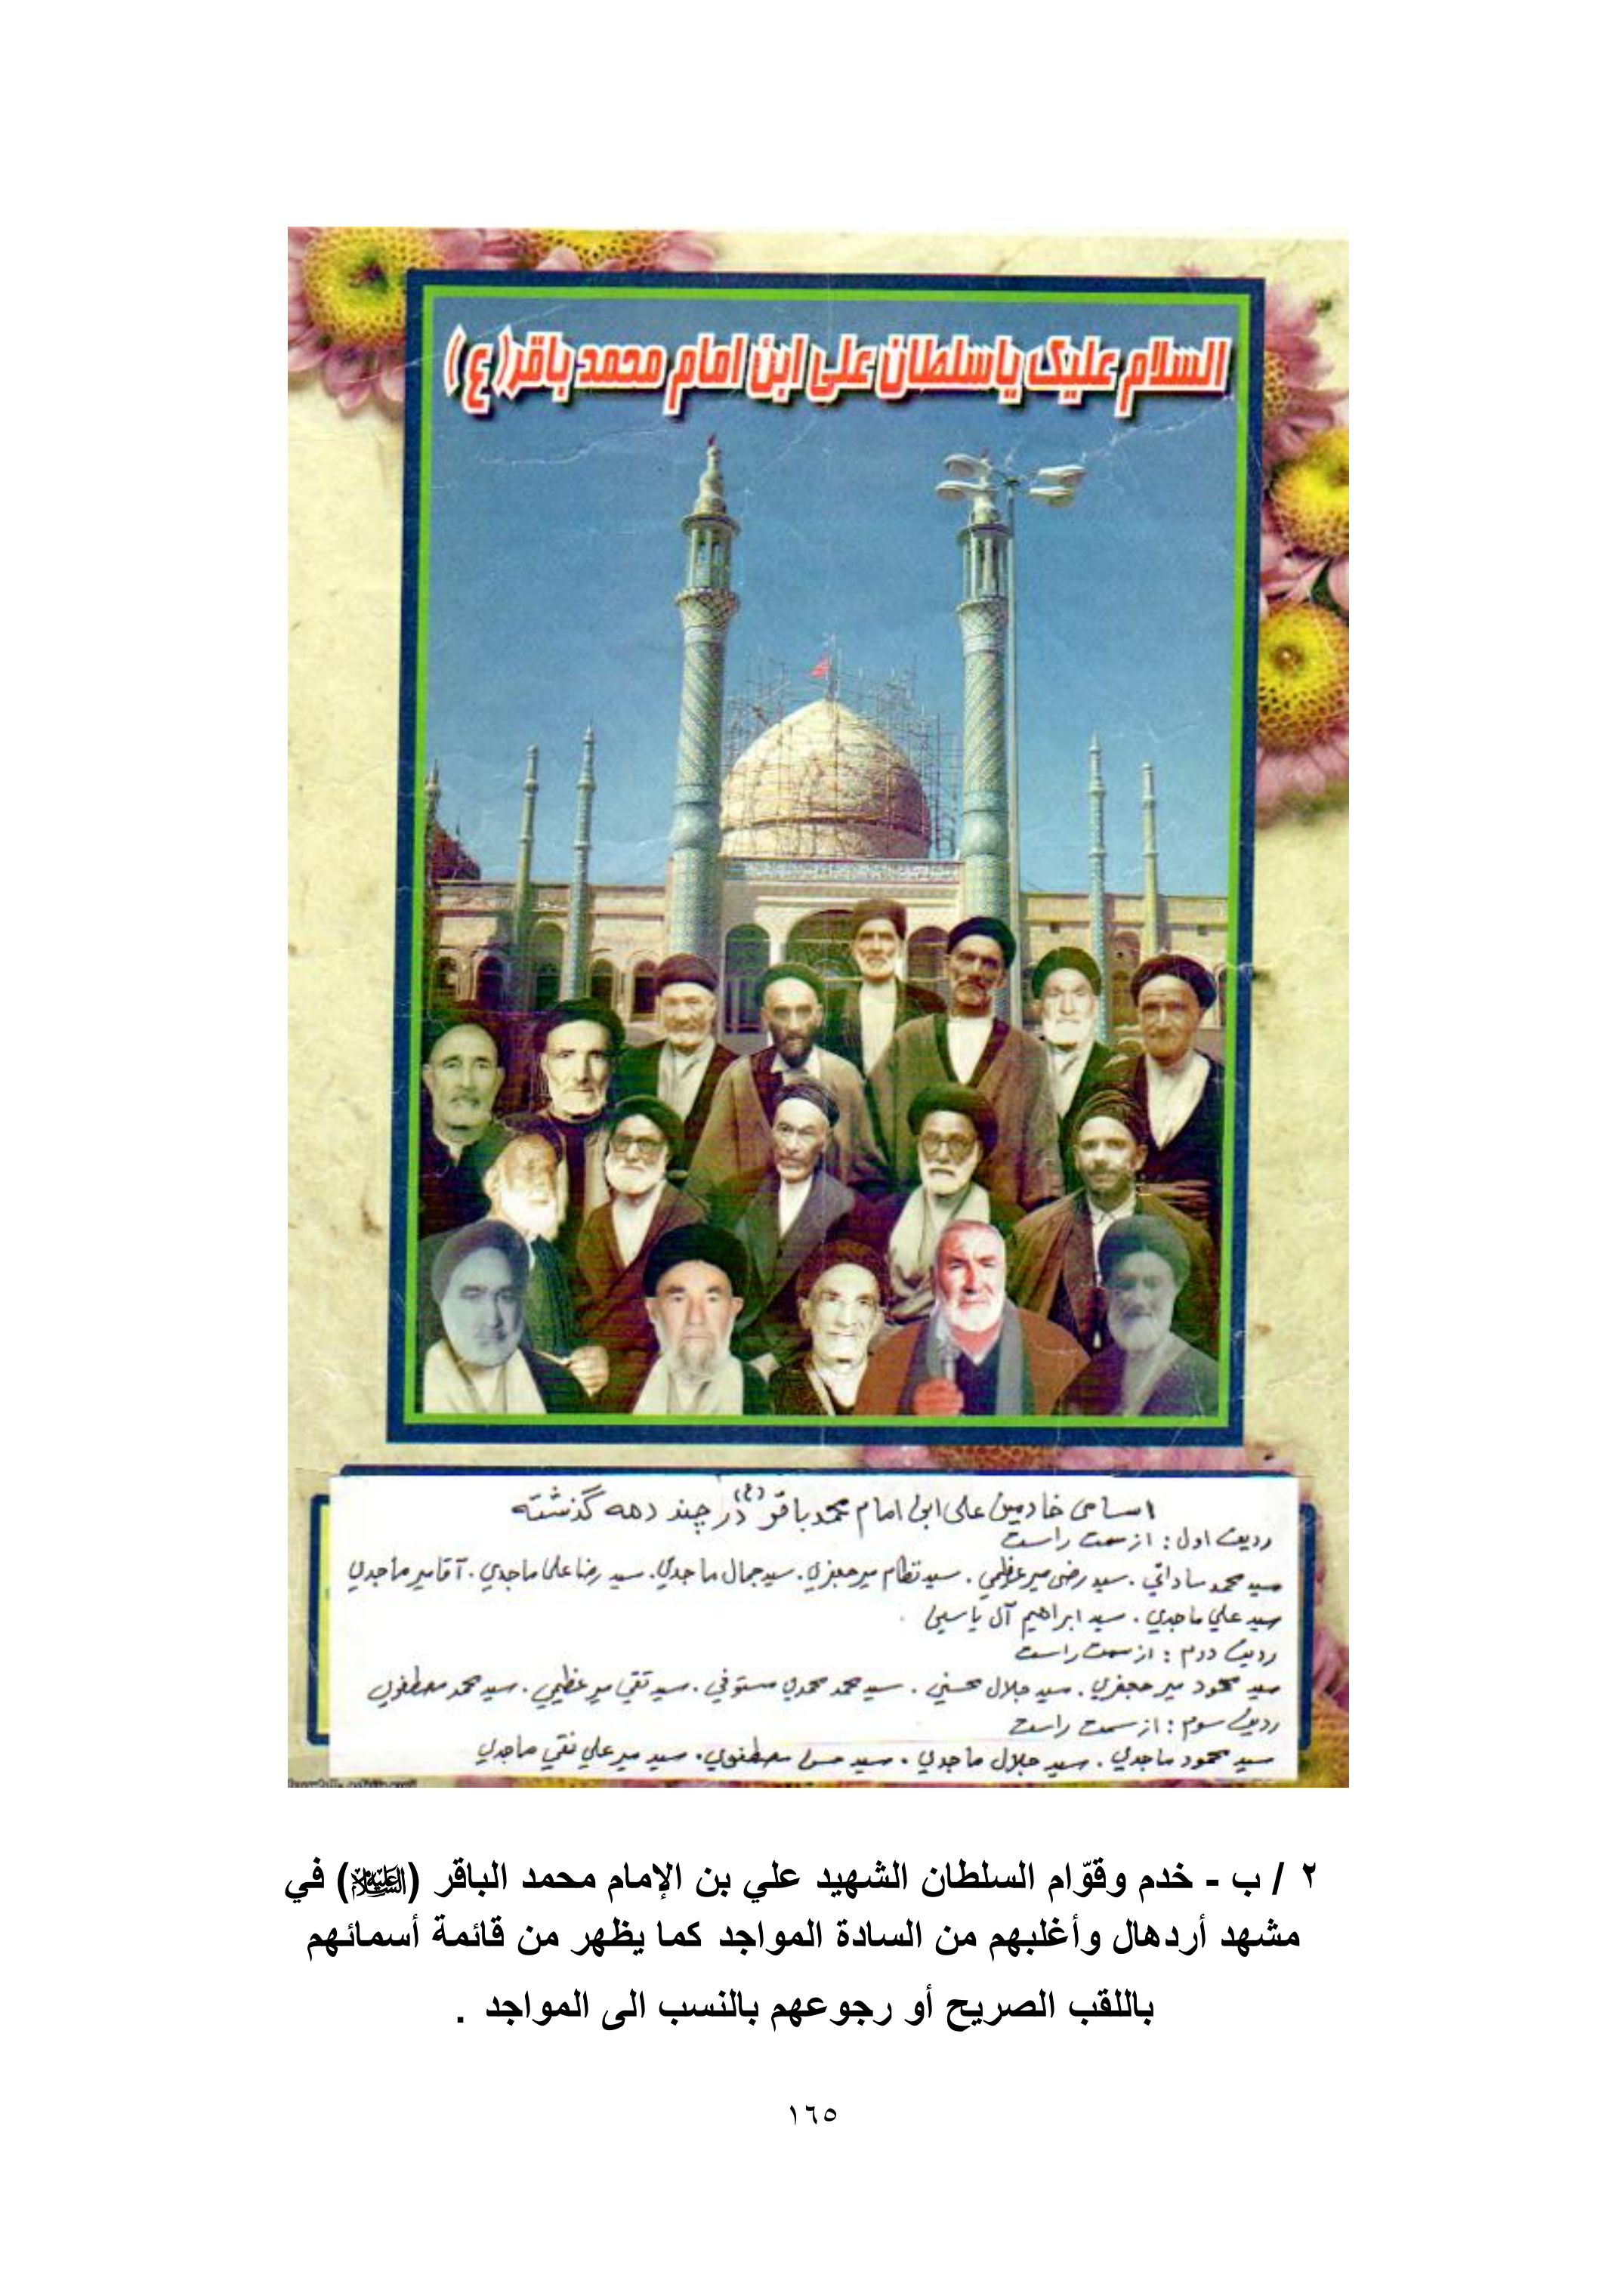 السلام علیک یا سلطان علی ابن امام محمد باقر (ع)
اسامی خادمین علی ابن امام محمد باقر (ع) در چند دهه گذشته
ردیف اول : از سمت راست
سید محمد ساداتي . سید رضی میر عظیمي . سید نظام میر جعفري . سید جمال ماجدي . سید رضا علی ماجدي . آقا میر ماجدي
سید علي ماجدي . سید ابراهیم آل یاسین .
ردیف دوم : از سمت راست
سید محمود میر جعفري . سید جلال حسیني . سید محمد محمدي مستوفي . سید تقي میر عظیمي . سید محمد مصطفوي
ردیف سوم : از سمت راست
سید محمود ماجدي . سید جلال ماجدي . سید حسن مصطفوي . سید میر علي نقي ماجدي
٢ / ب - خدم وقوّام السلطان الشهيد علي بن الإمام محمد الباقر (عليه السلام) في
مشهد أردهال وأغلبهم من السادة المواجد كما يظهر من قائمة أسمائهم
باللقب الصريح أو رجوعهم بالنسب الى المواجد .
١٦٥